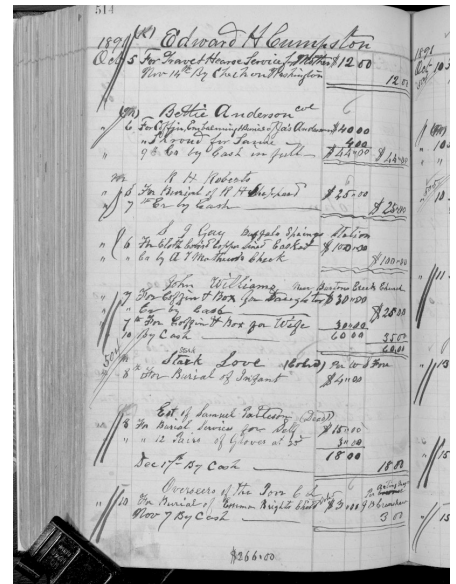 514
1891 Edward H Cumpston
Oct 5 For Travel Hearse Service for Mother $12.00
Nov 14th By Check on Washington 12.00
Bettie Anderson col
" 6 For Coffin, Embalming & Burial of Anderson $40.00
" Shroud for Same 4.00
" 9 Cr by Cash in full $44.00 $44.00
R H Roberts
" 6 For Burial of R H $25.00
" 7th Cr by Cash $25.00
S J Gay Buffalo Springs Station
" 6 For Cloth Cover Copper Lined Casket $100.00
" Cr by A J Check $100.00
John Williams Near Bartons Creek Church
" 7 For Coffin & Box for Daughter $30.00
" Cr by Cash $25.00
" 7th For Coffin & Box for Wife 30.00
" 10 By Cash 60.00 35.00
60.00
Stark
Love (Cold) Per W D
" 8th For Burial of Infant $4.00
Est. of Samuel Patteson (Decd)
" 8 For Burial Service for Self $15.00
" " 12 Pairs of Gloves at 25 3.00
18.00
Dec 17th By Cash 18.00
Overseers of the Poor
" 10 For Burial of Emma Brights Child $3.00
Nov 7 By Cash 3.00
$266.00
1891
Oct 10